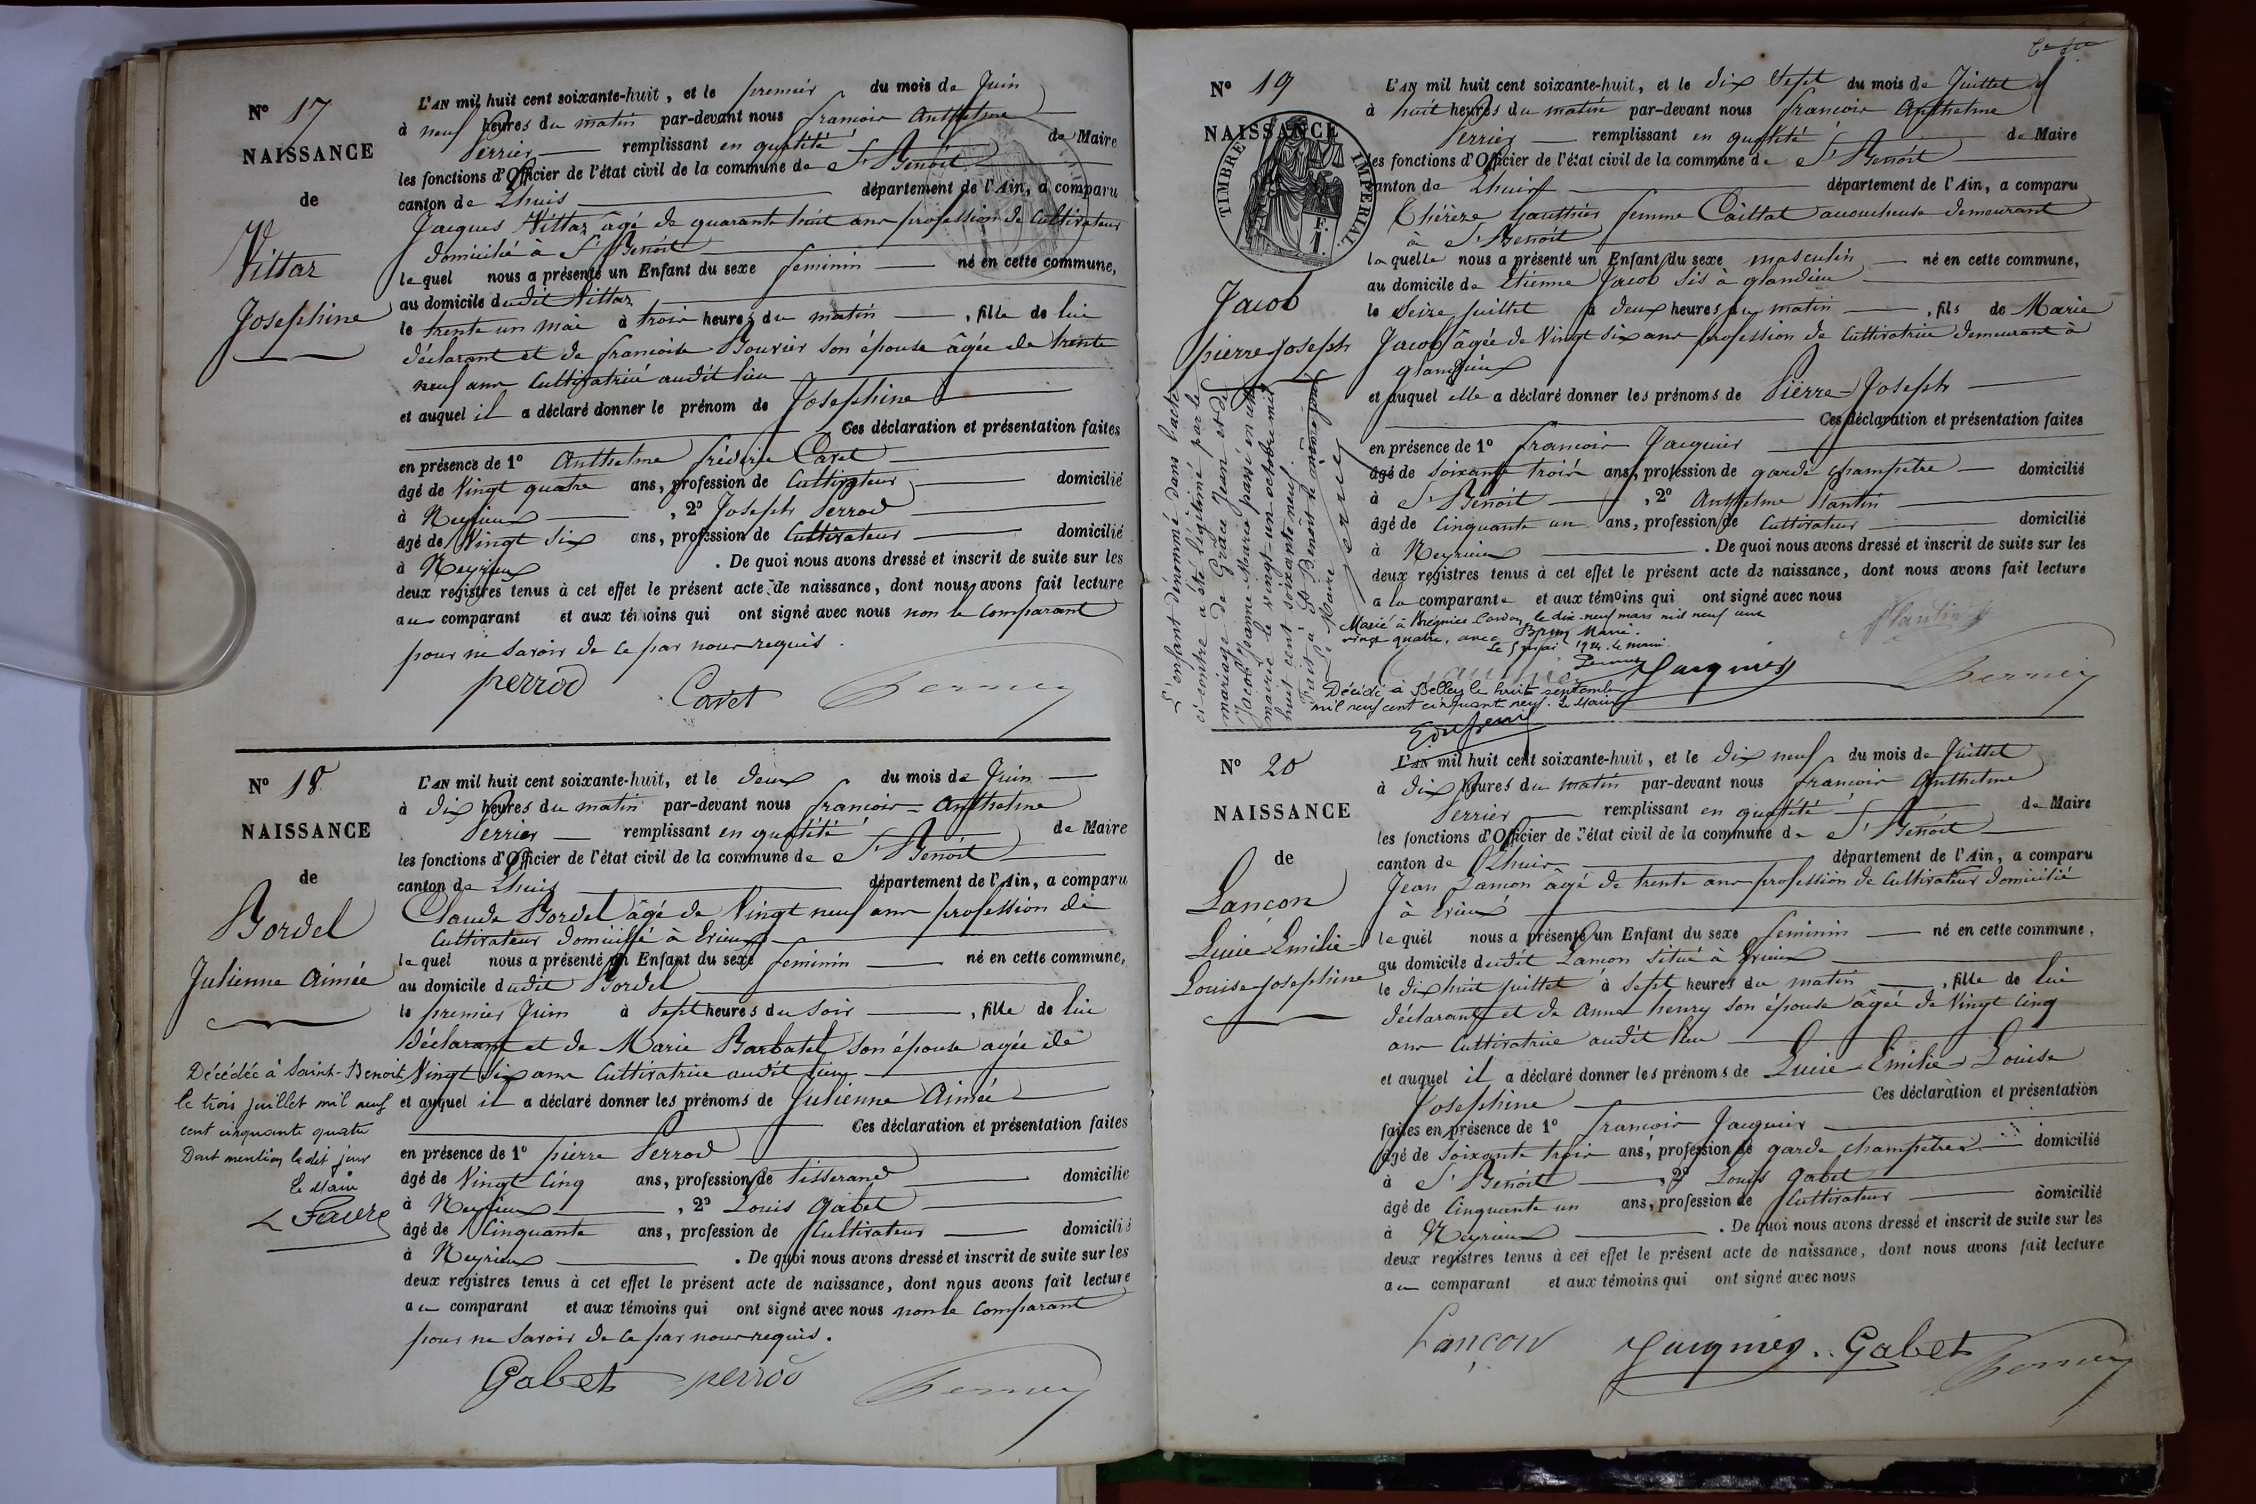 N° 17
NAISSANCE
de
Vittaz
Josephine
L'AN mil huit cent soixante-huit, et le premier du mois de Juin
à neuf heures du matin par-devant nous francois Anthelme
Perrier remplissant en qualité de Maire
les fonctions d'Officier de l'état civil de la commune de St Benoit
canton de Lhuis département de l'Ain, a comparu
Jacques Vittaz âgé de quarante huit ans profession de Cultivateur
domicilié à St Benoit
lequel nous a présenté un Enfant du sexe feminin né en cette commune,
au domicile dudit Vittaz
le trente un mai à trois heures du matin, fille de lui
déclarant et de francoise Bouvier son épouse âgée de trente
neuf ans Cultivatrice audit lieu
et auquel il a déclaré donner le prénom de Josephine
Ces déclaration et présentation faites
en présence de 1° Anthelme fréderic Cavet
âgé de Vingt quatre ans, profession de Cultivateur domicilié
à Neyrieux, 2° Joseph Perrod
âgé de Vingt six ans, profession de Cultivateur domicilié
à Neyrieux. De quoi nous avons dressé et inscrit de suite sur les
deux registres tenus à cet effet le présent acte de naissance, dont nous avons fait lecture
au comparant et aux témoins qui ont signé avec nous non le Comparant
pour ne savoir de ce par nous requis.
perrod Cavet Perrier
N° 18
NAISSANCE
de
Bordel
Julienne Aimée
L'AN mil huit cent soixante-huit, et le deux du mois de Juin
à dix heures du matin par-devant nous francois Anthelme
Perrier remplissant en qualité de Maire
les fonctions d'Officier de l'état civil de la commune de St Benoit
canton de Lhuis département de l'Ain, a comparu
Claude Bordel âgé de Vingt neuf ans profession de
Cultivateur domicilié à Erieux
lequel nous a présenté un Enfant du sexe feminin né en cette commune,
au domicile dudit Bordel
le premier Juin à sept heures du soir, fille de lui
déclarant et de Marie Barbatel son épouse agée de
Vingt six ans Cultivatrice audit lieu
et auquel il a déclaré donner les prénoms de Julienne Aimée
Ces déclaration et présentation faites
en présence de 1° pierre Perrod
âgé de Vingt Cinq ans, profession de tisserand domicilié
à Neyrieux, 2° Louis Gabet
âgé de Cinquante ans, profession de Cultivateur domicilié
à Neyrieux. De quoi nous avons dressé et inscrit de suite sur les
deux registres tenus à cet effet le présent acte de naissance, dont nous avons fait lecture
au comparant et aux témoins qui ont signé avec nous non le Comparant
pour ne savoir de ce par nous requis.
Gabet perrod Perrier
Décédée à Saint-Benoit
le trois juillet mil neuf
cent cinquante quatre
Dont mention ledit jour
Le Maire
L Favre
N° 19
NAISSANCE
TIMBRE IMPERIAL.
F.
1.
Jacob
pierre Joseph
L'AN mil huit cent soixante-huit, et le dix Sept du mois de Juillet
à huit heures du matin par-devant nous francois Anthelme
Perrier remplissant en qualité de Maire
les fonctions d'Officier de l'état civil de la commune de St Benoit
canton de Lhuis département de l'Ain, a comparu
Thérèze Gauthier femme Caillat accoucheuse demeurant
à St Benoit
laquelle nous a présenté un Enfant du sexe masculin né en cette commune,
au domicile de Etienne Jacob sis à glandieu
le Seize juillet à deux heures du matin, fils de Marie
Jacob âgée de Vingt six ans profession de Cultivatrice demeurant à
glandieux
et auquel elle a déclaré donner les prénoms de Pierre-Joseph
Ces déclaration et présentation faites
en présence de 1° francois Jacquier
âgé de soixante trois ans, profession de garde champetre domicilié
à St Benoit, 2° Anthelme Nantin
âgé de Cinquante un ans, profession de Cultivateur domicilié
à Neyrieux. De quoi nous avons dressé et inscrit de suite sur les
deux registres tenus à cet effet le présent acte de naissance, dont nous avons fait lecture
a la comparante et aux témoins qui ont signé avec nous
Marié à Brégnier-Cordon le dix-neuf mars mil neuf cent
vingt quatre, avec Marie.
Le 1924. le maire.
Nantin
Jacquier Perrier
Décédé à Belley le huit septembre
mil neuf cent cinquante neuf. Le Maire
L'enfant dénommé dans l'acte
ci-contre a été légitimé par le
mariage de Grâce Jean et de
Jacob Jeanne-Marie passé en cette
mairie le vingt-un octobre mil
huit cent soixante neuf.
Fait à St Benoît le même jour
Le Maire Perrier
N° 20
NAISSANCE
de
Lançon
Lucie Emilie
Louise Josephine
L'AN mil huit cent soixante-huit, et le dix neuf du mois de Juillet
à dix heures du matin par-devant nous francois Anthelme
Perrier remplissant en qualité de Maire
les fonctions d'Officier de l'état civil de la commune de St Benoit
canton de Lhuis département de l'Ain, a comparu
Jean Lancon âgé de trente ans profession de Cultivateur domicilié
à Erieux
lequel nous a présenté un Enfant du sexe feminin né en cette commune,
au domicile dudit Lancon situé à Erieux
le dix huit juillet à sept heures du matin, fille de lui
déclarant et de Anne henry son épouse âgée de Vingt Cinq
ans Cultivatrice audit lieu
et auquel il a déclaré donner les prénoms de Lucie Emilie Louise
Josephine Ces déclaration et présentation
faites en présence de 1° francois Jacquier
âgé de soixante trois ans, profession de garde champetre domicilié
à St Benoit, 2° Louis Gabet
âgé de Cinquante un ans, profession de Cultivateur domicilié
à Neyrieux. De quoi nous avons dressé et inscrit de suite sur les
deux registres tenus à cet effet le présent acte de naissance, dont nous avons fait lecture
au comparant et aux témoins qui ont signé avec nous
Lançon Jacquier Gabet Perrier